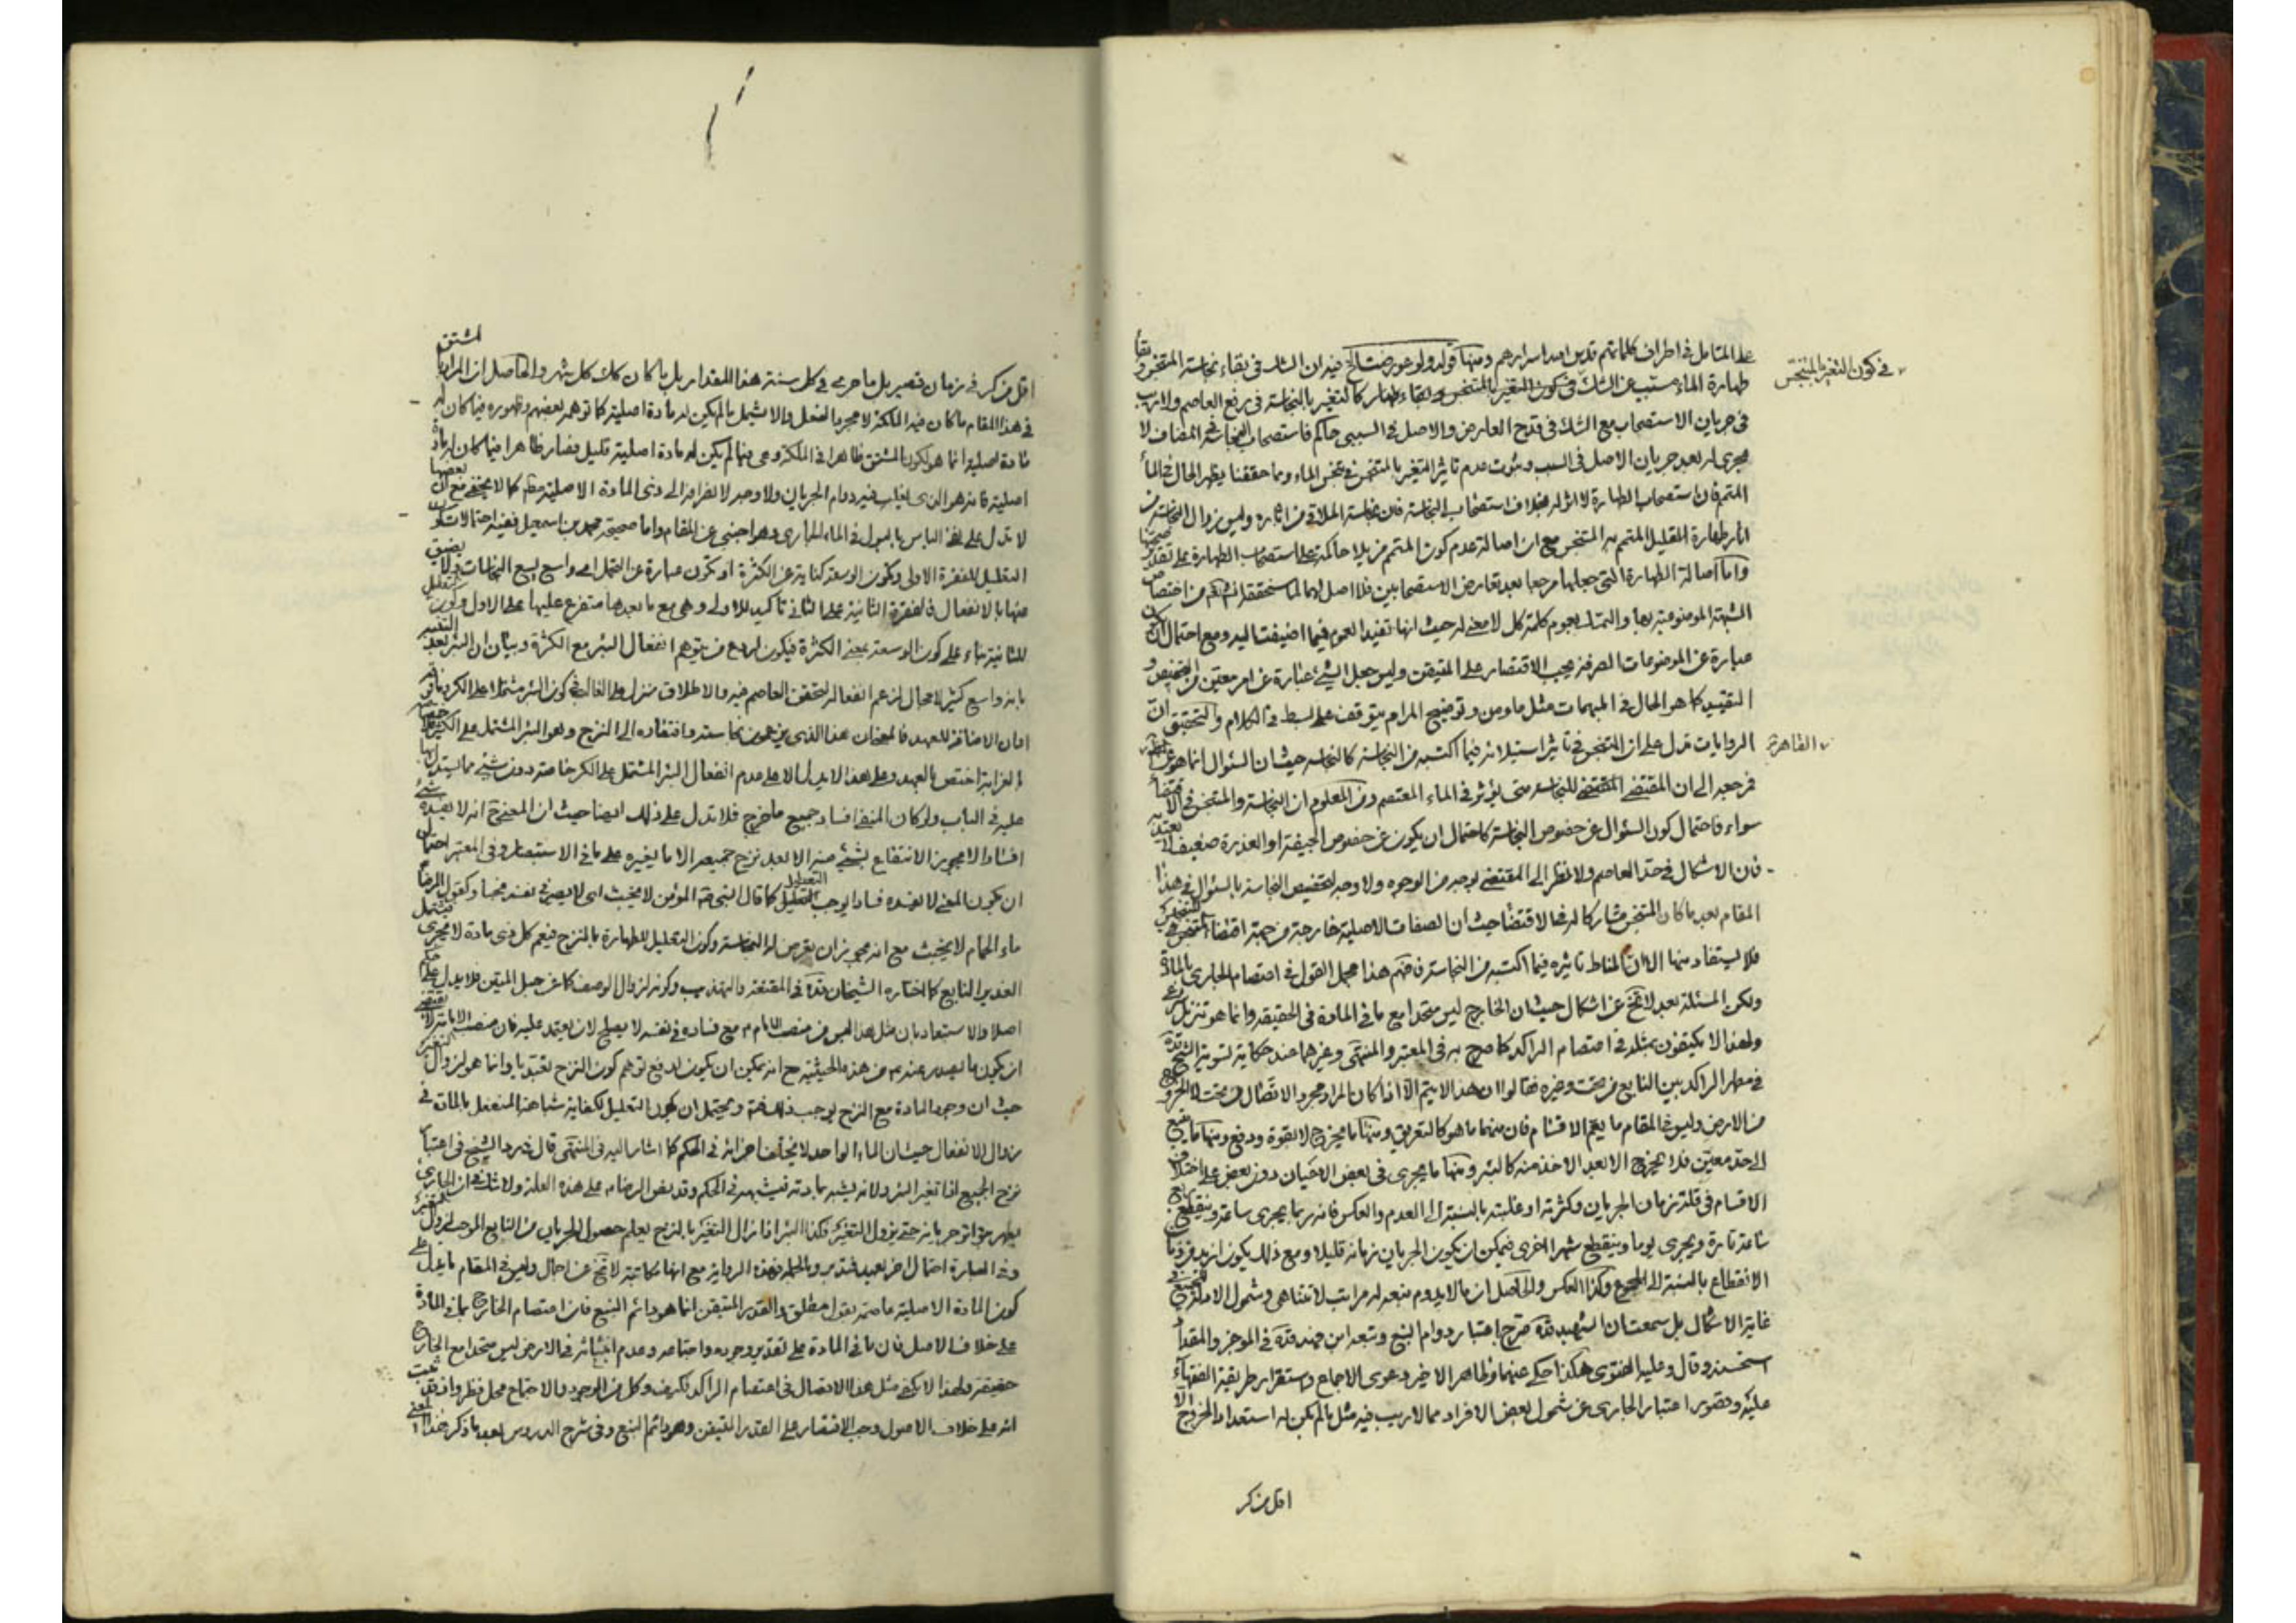 على المتامل في اطراف كلماتهم قدس الله اسرارهم ومنها قوله ولو عورضت الخ فيه ان الشك في بقاء نجاسة المتنجس و بقاء
طهارة الماء مسبب عن الشك في كون التغير بالمتنجس كالتغير بالنجاسة في رفع العاصم ولا ريب
في كون التغير بالمتنجس
في جريان الاستصحاب مع الشك في قدح العارض والاصل في السببي حاكم فاستصحاب النجاسة في المضاف لا
مجرى له بعد جريان الاصل في السبب وثبوت عدم تاثير المتغير بالمتنجس في تنجس الماء ومما حققنا يظهر الحال في الماء
المتمم فان استصحاب الطهارة لا اثر له بخلاف استصحاب النجاسة فان نجاسة الملاقي من اثاره وليس زوال النجاسة من
اثار طهارة القليل المتمم به المتنجس مع ان اصالة عدم كون المتمم مزيلا حاكمة على استصحاب الطهارة على تقدير صحتها
واما اصالة الطهارة التي جعلها مرجعا بعد تعارض الاستصحابين فلا اصل لها لما ستحققه انشاء الله من اختصاص
الشبهة الموضوعية بها والتمسك بعموم كلمة كل لا معنى له حيث انها تفيد العموم فيما اضيفت اليه ومع احتمال ان يكون
عبارة عن الموضوعات الصرفة يجب الاقتصار على المتيقن وليس جعل الشيء عبارة عن امر معين من التخصيص و
التقييد كما هو الحال في المبهمات مثل ما ومن وتوضيح المرام يتوقف على بسط في الكلام والتحقيق ان
الروايات تدل على ان المتنجس في تاثير استيلائه فيما اكتسبه من النجاسة كالنجاسة حيث ان السؤال انما هو عن
القاهرة
فمرجعه الى ان المقتضى المقتضي للنجاسة متى يؤثر في الماء المعتصم ومن المعلوم ان النجاسة والمتنجس في الاقتضاء
سواء فاحتمال كون السؤال عن خصوص النجاسة كاحتمال ان يكون عن خصوص الجيفة او العذرة ضعيف لا يعتد به
فان الاشكال في حد العاصم ولا نظر الى المقتضى بوجه من الوجوه ولا وجه لتخصيص النجاسة بالسؤال في هذا
المقام بعد ما كان المتنجس مشاركا لها في الاقتضاء حيث ان الصفات الاصلية خارجة من جهة اقتضاء المتنجس
فلا يستفاد منها الا ان المناط تاثيره فيما اكتسبه من النجاسة فافهم هذا مجمل القول في اعتصام الجاري بالمادة
ولكن المسئلة بعد لا تخ عن اشكال حيث ان الخارج ليس متحدا مع ما في المادة في الحقيقة وانما هو تنزيل شرعي
ولهذا لا يكتفون بمثله في اعتصام الراكد كما صرح به في المعتبر والمنتهى وغيرهما عند حكاية تسوية الشيخ قده
في مطهر الراكد بين النابع من تحت وغيره فقالوا ان هذا لا يتم الا اذا كان المراد مجرد الاتصال من تحت لا الخروج
من الارض وليس في المقام ما يعم الاقسام فان منها ما هو كالتعريق ومنها ما يخرج لا بقوة ودفع ومنها ما ينبع
الى حد معين فلا يخرج الا بعد الاخذ منه كالبئر ومنها ما يجري في بعض الاحيان دون بعض على اختلاف
الاقسام في قلة زمان الجريان وكثرته او غلبته بالنسبة الى العدم والعكس فانه ربما يجري ساعة وينقطع
ساعة تارة ويجري يوما وينقطع شهرا اخرى فيمكن ان يكون الجريان زمانه قليلا ومع ذلك يكون ازيد من زمان
الانقطاع بالنسبة الى المجموع وكذا العكس والحاصل ان ما لا يدوم نبعه له مراتب لا تتناهى وشمول الادلة للجميع في
غاية الاشكال بل سمعت ان الشهيد قده صرح باعتبار دوام النبع وتبعه ابن فهد قده في الموجز والمقداد
استحسنه وقال وعليه الفتوى هكذا حكى عنهما وظاهر الاخير دعوى الاجماع واستقرار طريقة الفقهاء
عليه وقصور اعتبار الجاري عن شمول بعض الافراد مما لا ريب فيه مثل ما لم يكن له استعداد الخروج الا
اقل من كر
اقل من كر في زمان قصير بل ما جرى في كل سنة هذا المقدار بل ما كان كك كل شهر والحاصل ان المراد بالمشتق
في هذا المقام ما كان فيه الملكة لا مجرد الفعل والا شمل ما لم يكن له مادة اصلية كما توهم بعضهم وظهوره فيما كان له
مادة اصلية انما هو لكون المشتق ظاهرا في الملكة وهي فيما لم يكن له مادة اصلية قليل فصار ظاهرا فيما كان له مادة
اصلية فانه هو الذي يغلب فيه دوام الجريان ولا وجه لانصرافه الى ذي المادة الاصلية مطلقا كما لا يخفى مع ان بعضها
لا تدل على نفي الباس بالبول في الماء الجاري وهو اجنبي عن المقام واما صحيحة محمد بن اسمعيل ففيه احتمالات كون
التعليل للفقرة الاولى وكون الوسعة كناية عن الكثرة او تكون عبارة عن التحمل اي واسع يسع النجاسات ولا يضيق
عنها بالانفعال فالفقرة الثانية على الثاني تاكيد للاولى وهي مع ما بعدها متفرع عليها على الاول وكون التعليل
للثانية بناء على كون الوسعة بمعنى الكثرة فيكون لردع من يتوهم انفعال البئر مع الكثرة وبيان ان البئر بعد التغير
بانه واسع كثير لا مجال لزعم انفعاله لتحقق العاصم فيه والاطلاق منزل على الغالب في كون البئر مشتملا على الكر
او ان الاضافة للعهد فالمعنى ان هذا الذي يزعمون نجاسته وافتقاره الى النزح وهو البئر المشتمل على الكثير
عليه في الباب ولو كان المنفي افساد جميع ما خرج فلا تدل على ذلك ايضا حيث ان المعنى ح انه لا يفسده شيء
افسادا لا يجوز الانتفاع بشيء منه الا بعد نزح جميعه الا ما يغيره على ما في الاستبصار وفي المعتبر احتمال
ان يكون المعنى لا يفسده فسادا يوجب التعطيل كما قال النبي ص المؤمن لا يخبث اي لا يصير في نفسه خبثا وكقول الرضا ع
ماء الحمام لا يخبث مع انه يجوز ان تعرض له النجاسة وكون التعليل للطهارة بالنزح فيعم كل ذي مادة لا يجري فيشمل
الغدير النابع كما اختاره الشيخان قده في المقنعة والتهذيب وكونه لزوال الوصف كما عن حبل المتين فلا يدل على
اصلا والاستبعاد بان مثل هذا ليس من منصب الامام ع مع فساده في نفسه لا يصلح لان يعتمد عليه فان منصب الامامة لا يقتضي
ان يكون ما يصدر عنهم من هذه الحيثية ح انه يمكن ان يكون لدفع توهم كون النزح تعبديا وانما هو لزوال التغير
حيث ان وجود المادة مع النزح يوجب ذلك ويحتمل ان يكون التعليل لكفاية شباهة المنفعل بالمادة في
زوال الانفعال حيث ان الماء الواحد لا يختلف اجزائه في الحكم كما اشار اليه في المنتهى قال في رد الشيخ في اعتبار
نزح الجميع اذا تغير البئر ولانه يشبه بمادته فيشبهه في الحكم وقد نص الرضا ع على هذه العلة ولا شك ان الجاري
يطهر بتواتر جريانه حتى يزول التغير فكذا البئر اذا زال التغير بالنزح يعلم حصول الجريان من النابع الموجب لزوال التغير
وفي العبارة احتمال اخر بعيد فتدبر وبالجملة فهذه الرواية مع انها مكاتبة لا تخ عن اجمال وليس في المقام ما يدل على
كون المادة الاصلية عاصمة بقول مطلق والقدر المتيقن انما هو دائم النبع فان اعتصام الخارج بما في المادة
على خلاف الاصل فان ما في المادة على تقدير وجوده واجتماعه وعدم انبثاثه في الارض ليس متحدا مع الخارج
حقيقة ولهذا لا يكفي مثل هذا الاتصال في اعتصام الراكد بكر وكل من الوجود والاجتماع محل نظر واذ قد ثبت
انه على خلاف الاصول وجب الاقتصار على القدر المتيقن وهو دائم النبع وفي شرح الدروس بعد ما ذكر هذا المعنى